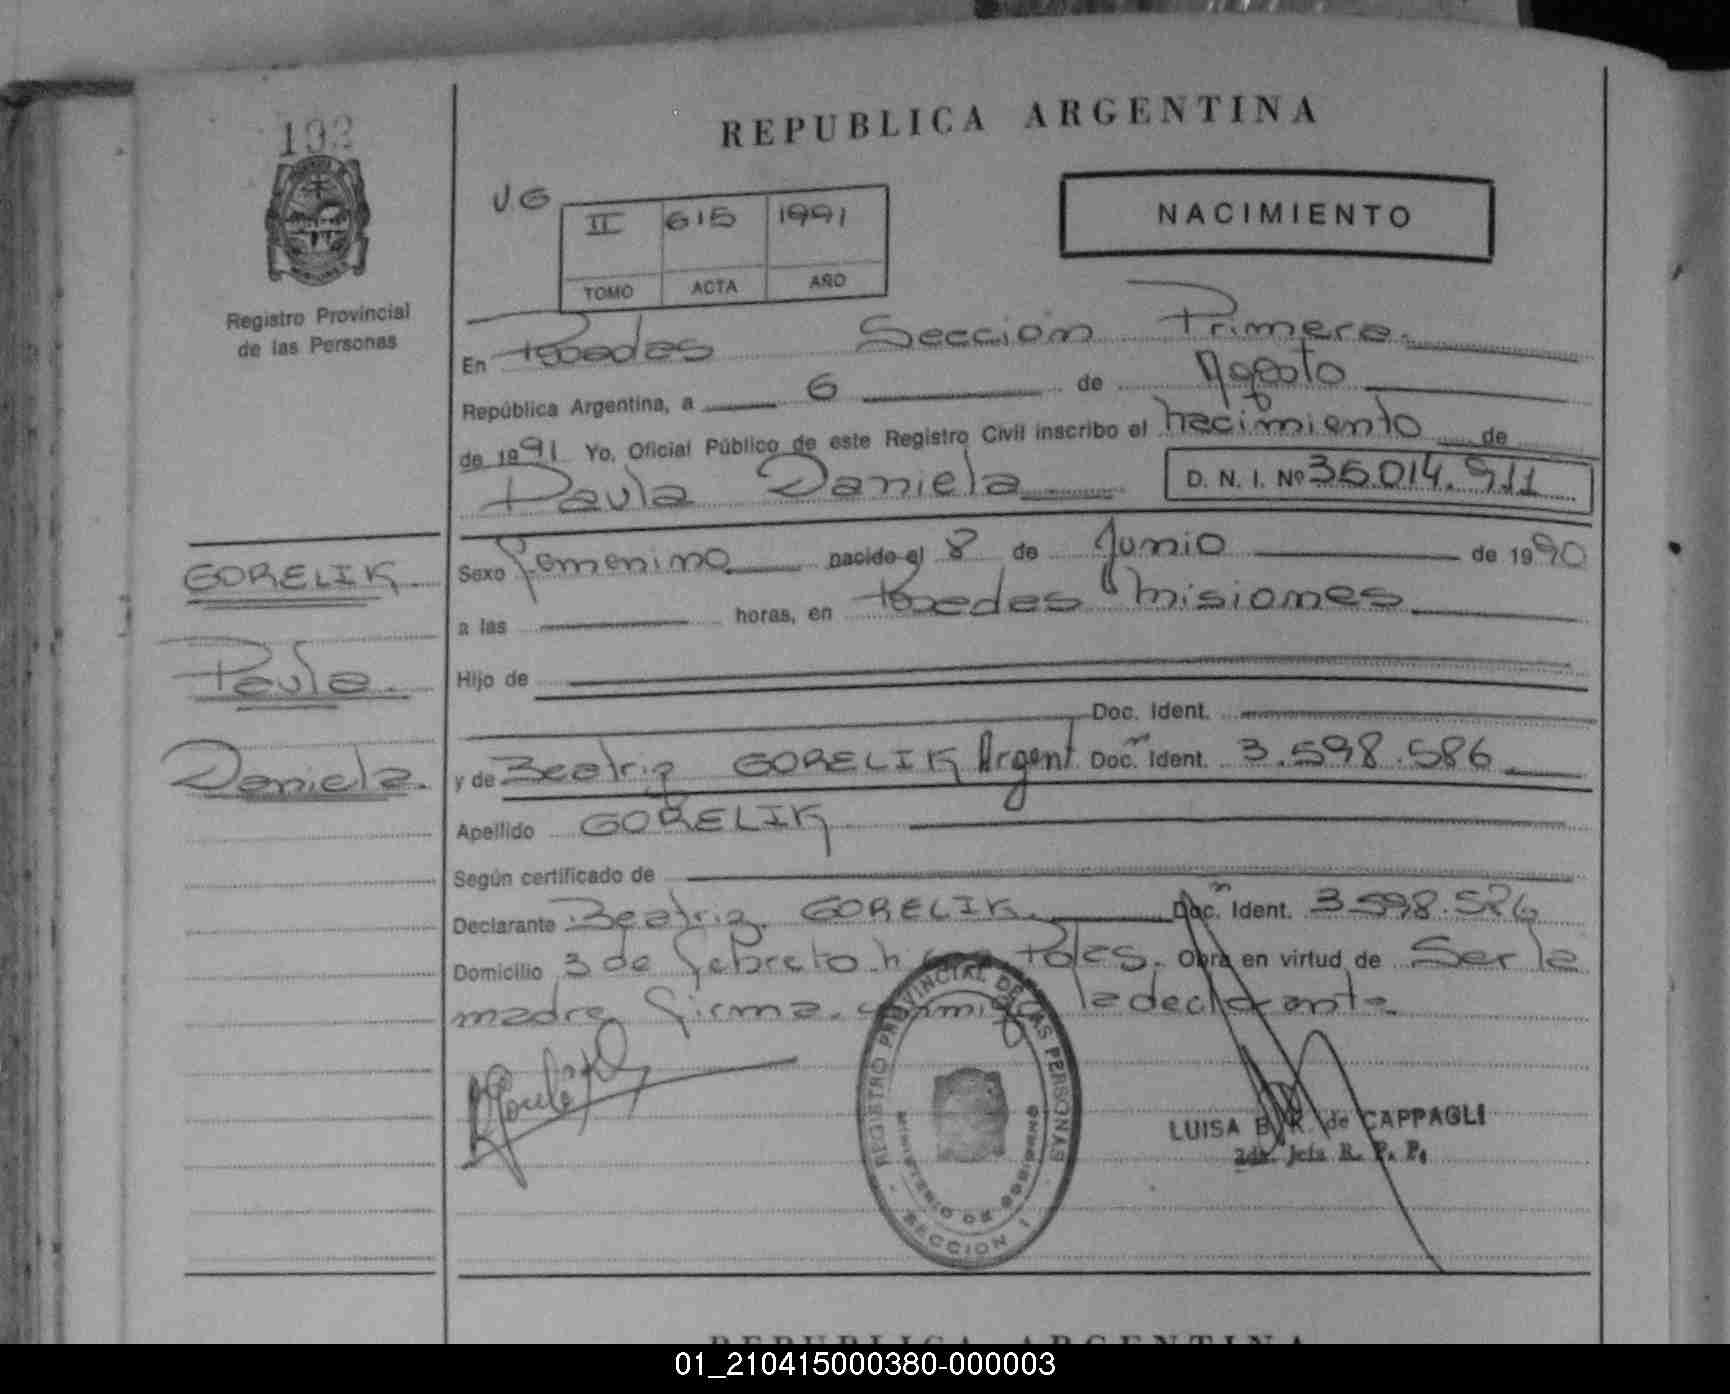 REPUBLICA ARGENTINA
192
UG
II 615 1991
TOMO ACTA AÑO
NACIMIENTO
Registro Provincial
de las Personas
En Posadas Sección Primera.
República Argentina, a 6 de Agosto
de 1991 Yo, Oficial Público de este Registro Civil inscribo el nacimiento de
Paula Daniela D. N. I. Nº 35.014.911
GORELIK
Paula
Daniela
Sexo femenino nacido el 8 de Junio de 1990
a las horas, en Posadas Misiones
Hijo de
Doc. Ident.
y de Beatriz GORELIK Argent Doc. Ident. 3.598.586
Apellido GORELIK
Según certificado de
Declarante Beatriz GORELIK Doc. Ident. 3.598.586
Domicilio 3 de febrero Pdas. Obra en virtud de Ser la
madre firma conmigo la declarante
REGISTRO PROVINCIAL DE LAS PERSONAS
MINISTERIO DE GOBIERNO
SECCION 1
LUISA B. R. de CAPPAGLI
2da. Jefa R. P. P.
REPUBLICA ARGENTINA
01_210415000380-000003